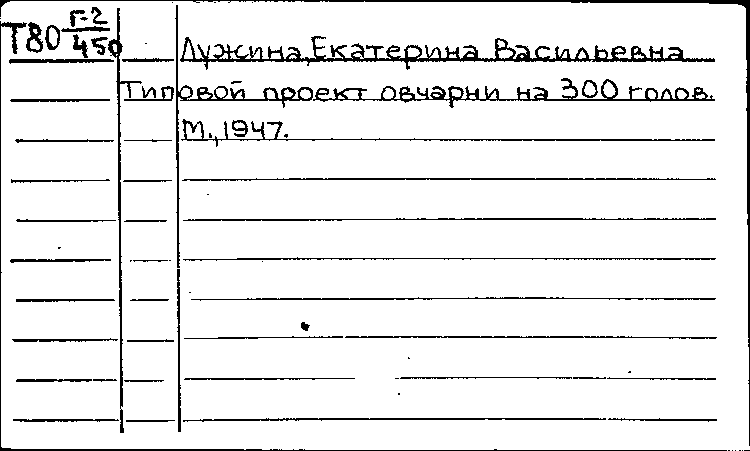 Т80 Г-2/450
Лужина, Екатерина Васильевна
Типовой проект овчарни на 300 голов.
М., 1947.